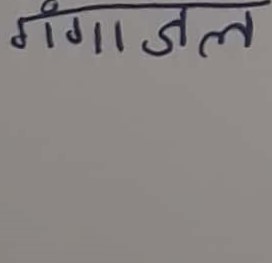 गंगा जल